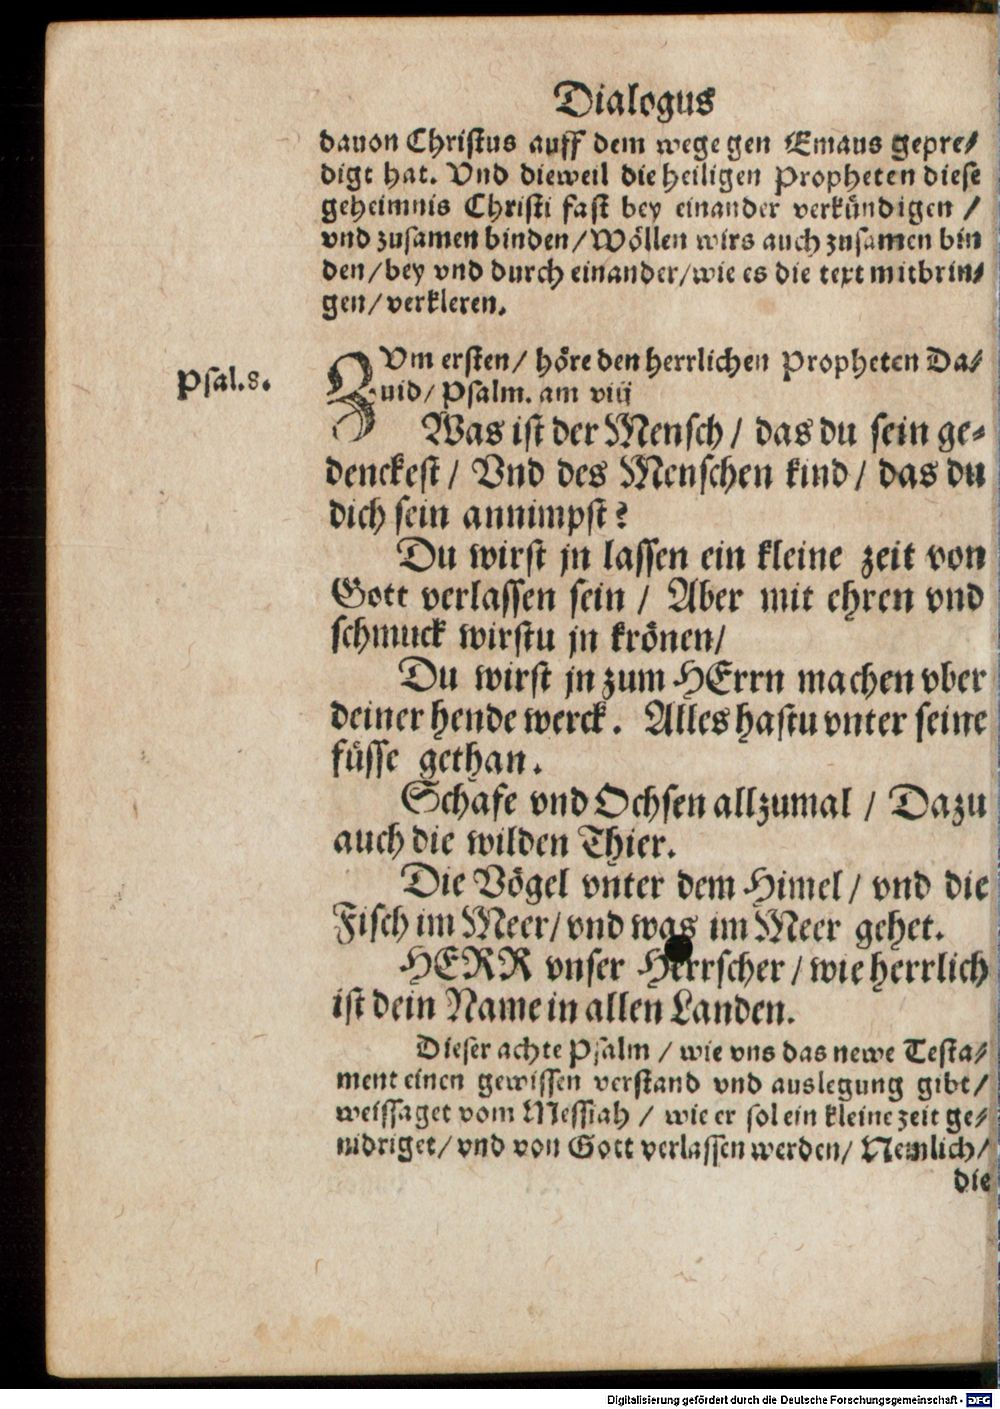 Dialogus
dauon Christus auff dem wege gen Emaus gepre/
digt hat. Vnd dieweil die heiligen Propheten diese
geheimnis Christi fast bey einander verkündigen /
vnd zusamen binden/Wöllen wirs auch zusamen bin
den/bey vnd durch einander/wie es die text mitbrin/
gen/verkleren.
Psal.8.
ZVm ersten/ höre den herrlichen Propheten Da/
uid/ Psalm. am viij
Was ist der Mensch / das du sein ge-
denckest / Vnd des Menschen kind / das du
dich sein annimpst?
Du wirst jn lassen ein kleine zeit von
Gott verlassen sein / Aber mit ehren vnd
schmuck wirstu jn krönen/
Du wirst jn zum HErrn machen vber
deiner hende werck. Alles hastu vnter seine
füsse gethan.
Schafe vnd Ochsen allzumal / Dazu
auch die wilden Thier.
Die Vögel vnter dem Himel/ vnd die
Fisch im Meer/vnd was im Meer gehet.
HERR vnser Herrscher / wie herrlich
ist dein Name in allen Landen.
Dieser achte Psalm / wie vns das newe Testa/
ment einen gewissen verstand vnd auslegung gibt/
weissaget vom Messiah / wie er sol ein kleine zeit ge/
nidriget/ vnd von Gott verlassen werden/ Nemlich/
die
Digitalisierung gefördert durch die Deutsche Forschungsgemeinschaft - DFG